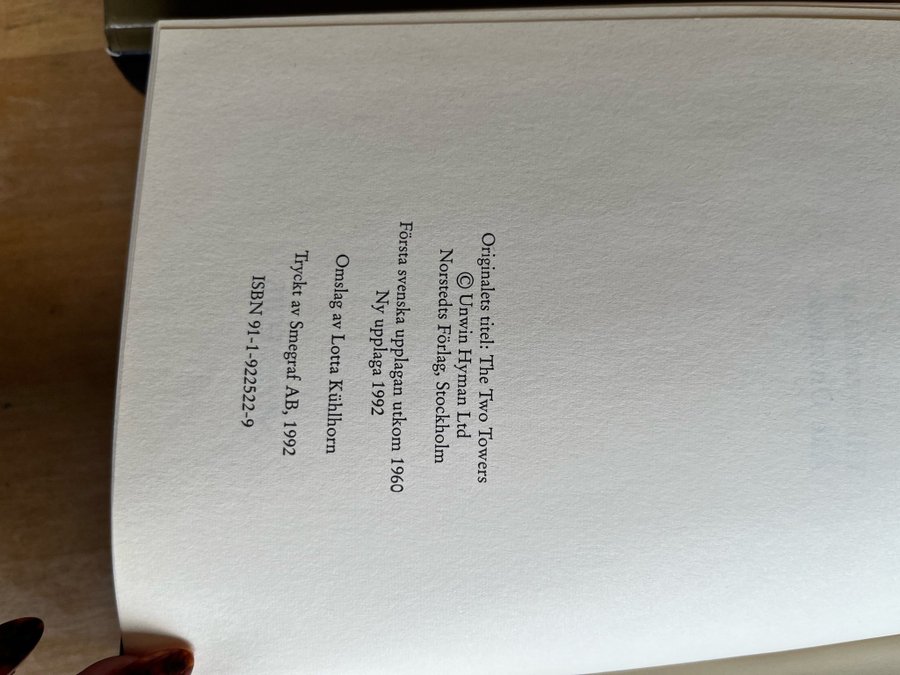 Originalets titel: The Two Towers
© Unwin Hyman Ltd
Norstedts Förlag, Stockholm
Första svenska upplagan utkom 1960
Ny upplaga 1992
Omslag av Lotta Kühlhorn
Tryckt av Smegraf AB, 1992
ISBN 91-1-922522-9